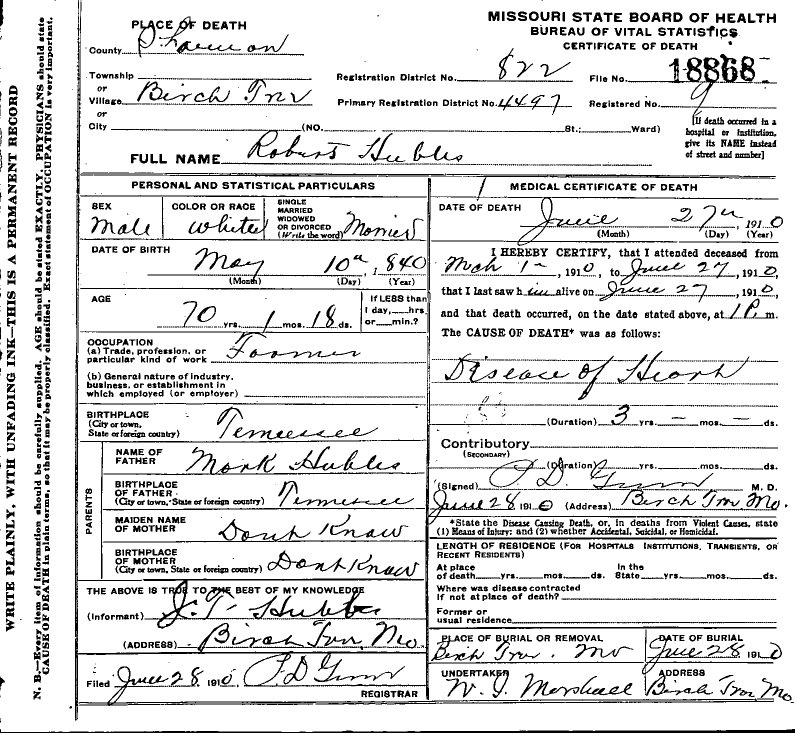 WRITE PLAINLY, WITH UNFADING INK—THIS IS A PERMANENT RECORD
N. B.—Every item of information should be carefully supplied. AGE should be stated EXACTLY. PHYSICIANS should state
CAUSE OF DEATH in plain terms, so that it may be properly classified. Exact statement of OCCUPATION is very important.
MISSOURI STATE BOARD OF HEALTH
BUREAU OF VITAL STATISTICS
CERTIFICATE OF DEATH
PLACE OF DEATH
County Shannon
Township
or
Village Birch Tree
or
City (NO. St.; Ward)
Registration District No. 822 File No. 18868
Primary Registration District No. 4497 Registered No. 9
[If death occurred in a
hospital or institution,
give its NAME instead
of street and number]
FULL NAME Robert Hubbs
PERSONAL AND STATISTICAL PARTICULARS
SEX Male
COLOR OR RACE White
SINGLE
MARRIED
WIDOWED
OR DIVORCED
(Write the word) Married
DATE OF BIRTH
May 10th, 1840
(Month) (Day) (Year)
AGE
70 yrs. 1 mos. 18 ds.
If LESS than
1 day, hrs.
or min.?
OCCUPATION
(a) Trade, profession, or
particular kind of work Farmer
(b) General nature of industry,
business, or establishment in
which employed (or employer)
BIRTHPLACE
(City or town,
State or foreign country) Tennessee
PARENTS
NAME OF
FATHER Mark Hubbs
BIRTHPLACE
OF FATHER
(City or town, State or foreign country) Tennessee
MAIDEN NAME
OF MOTHER Dont Know
BIRTHPLACE
OF MOTHER
(City or town, State or foreign country) Dont Know
THE ABOVE IS TRUE TO THE BEST OF MY KNOWLEDGE
(Informant) J. T. Hubbs
(ADDRESS) Birch Tree, Mo.
Filed June 28 1910. P. D. Gunn
REGISTRAR
MEDICAL CERTIFICATE OF DEATH
DATE OF DEATH
June 27th, 1910
(Month) (Day) (Year)
I HEREBY CERTIFY, that I attended deceased from
Mch 1–, 1910, to June 27, 1910,
that I last saw him alive on June 27, 1910,
and that death occurred, on the date stated above, at 1 P. m.
The CAUSE OF DEATH* was as follows:
Disease of Heart
(Duration) 3 yrs. – mos. – ds.
Contributory
(SECONDARY)
(Duration) yrs. mos. ds.
(Signed) P. D. Gunn M. D.
June 28 1910 (Address) Birch Tree Mo.
*State the Disease Causing Death, or, in deaths from Violent Causes, state
(1) Means of Injury; and (2) whether Accidental, Suicidal, or Homicidal.
LENGTH OF RESIDENCE (FOR HOSPITALS INSTITUTIONS, TRANSIENTS, OR
RECENT RESIDENTS)
At place
of death yrs. mos. ds.
In the
State yrs. mos. ds.
Where was disease contracted
if not at place of death?
Former or
usual residence
PLACE OF BURIAL OR REMOVAL
Birch Tree. Mo
DATE OF BURIAL
June 28 1910
UNDERTAKER
W. J. Marshall
ADDRESS
Birch Tree Mo.